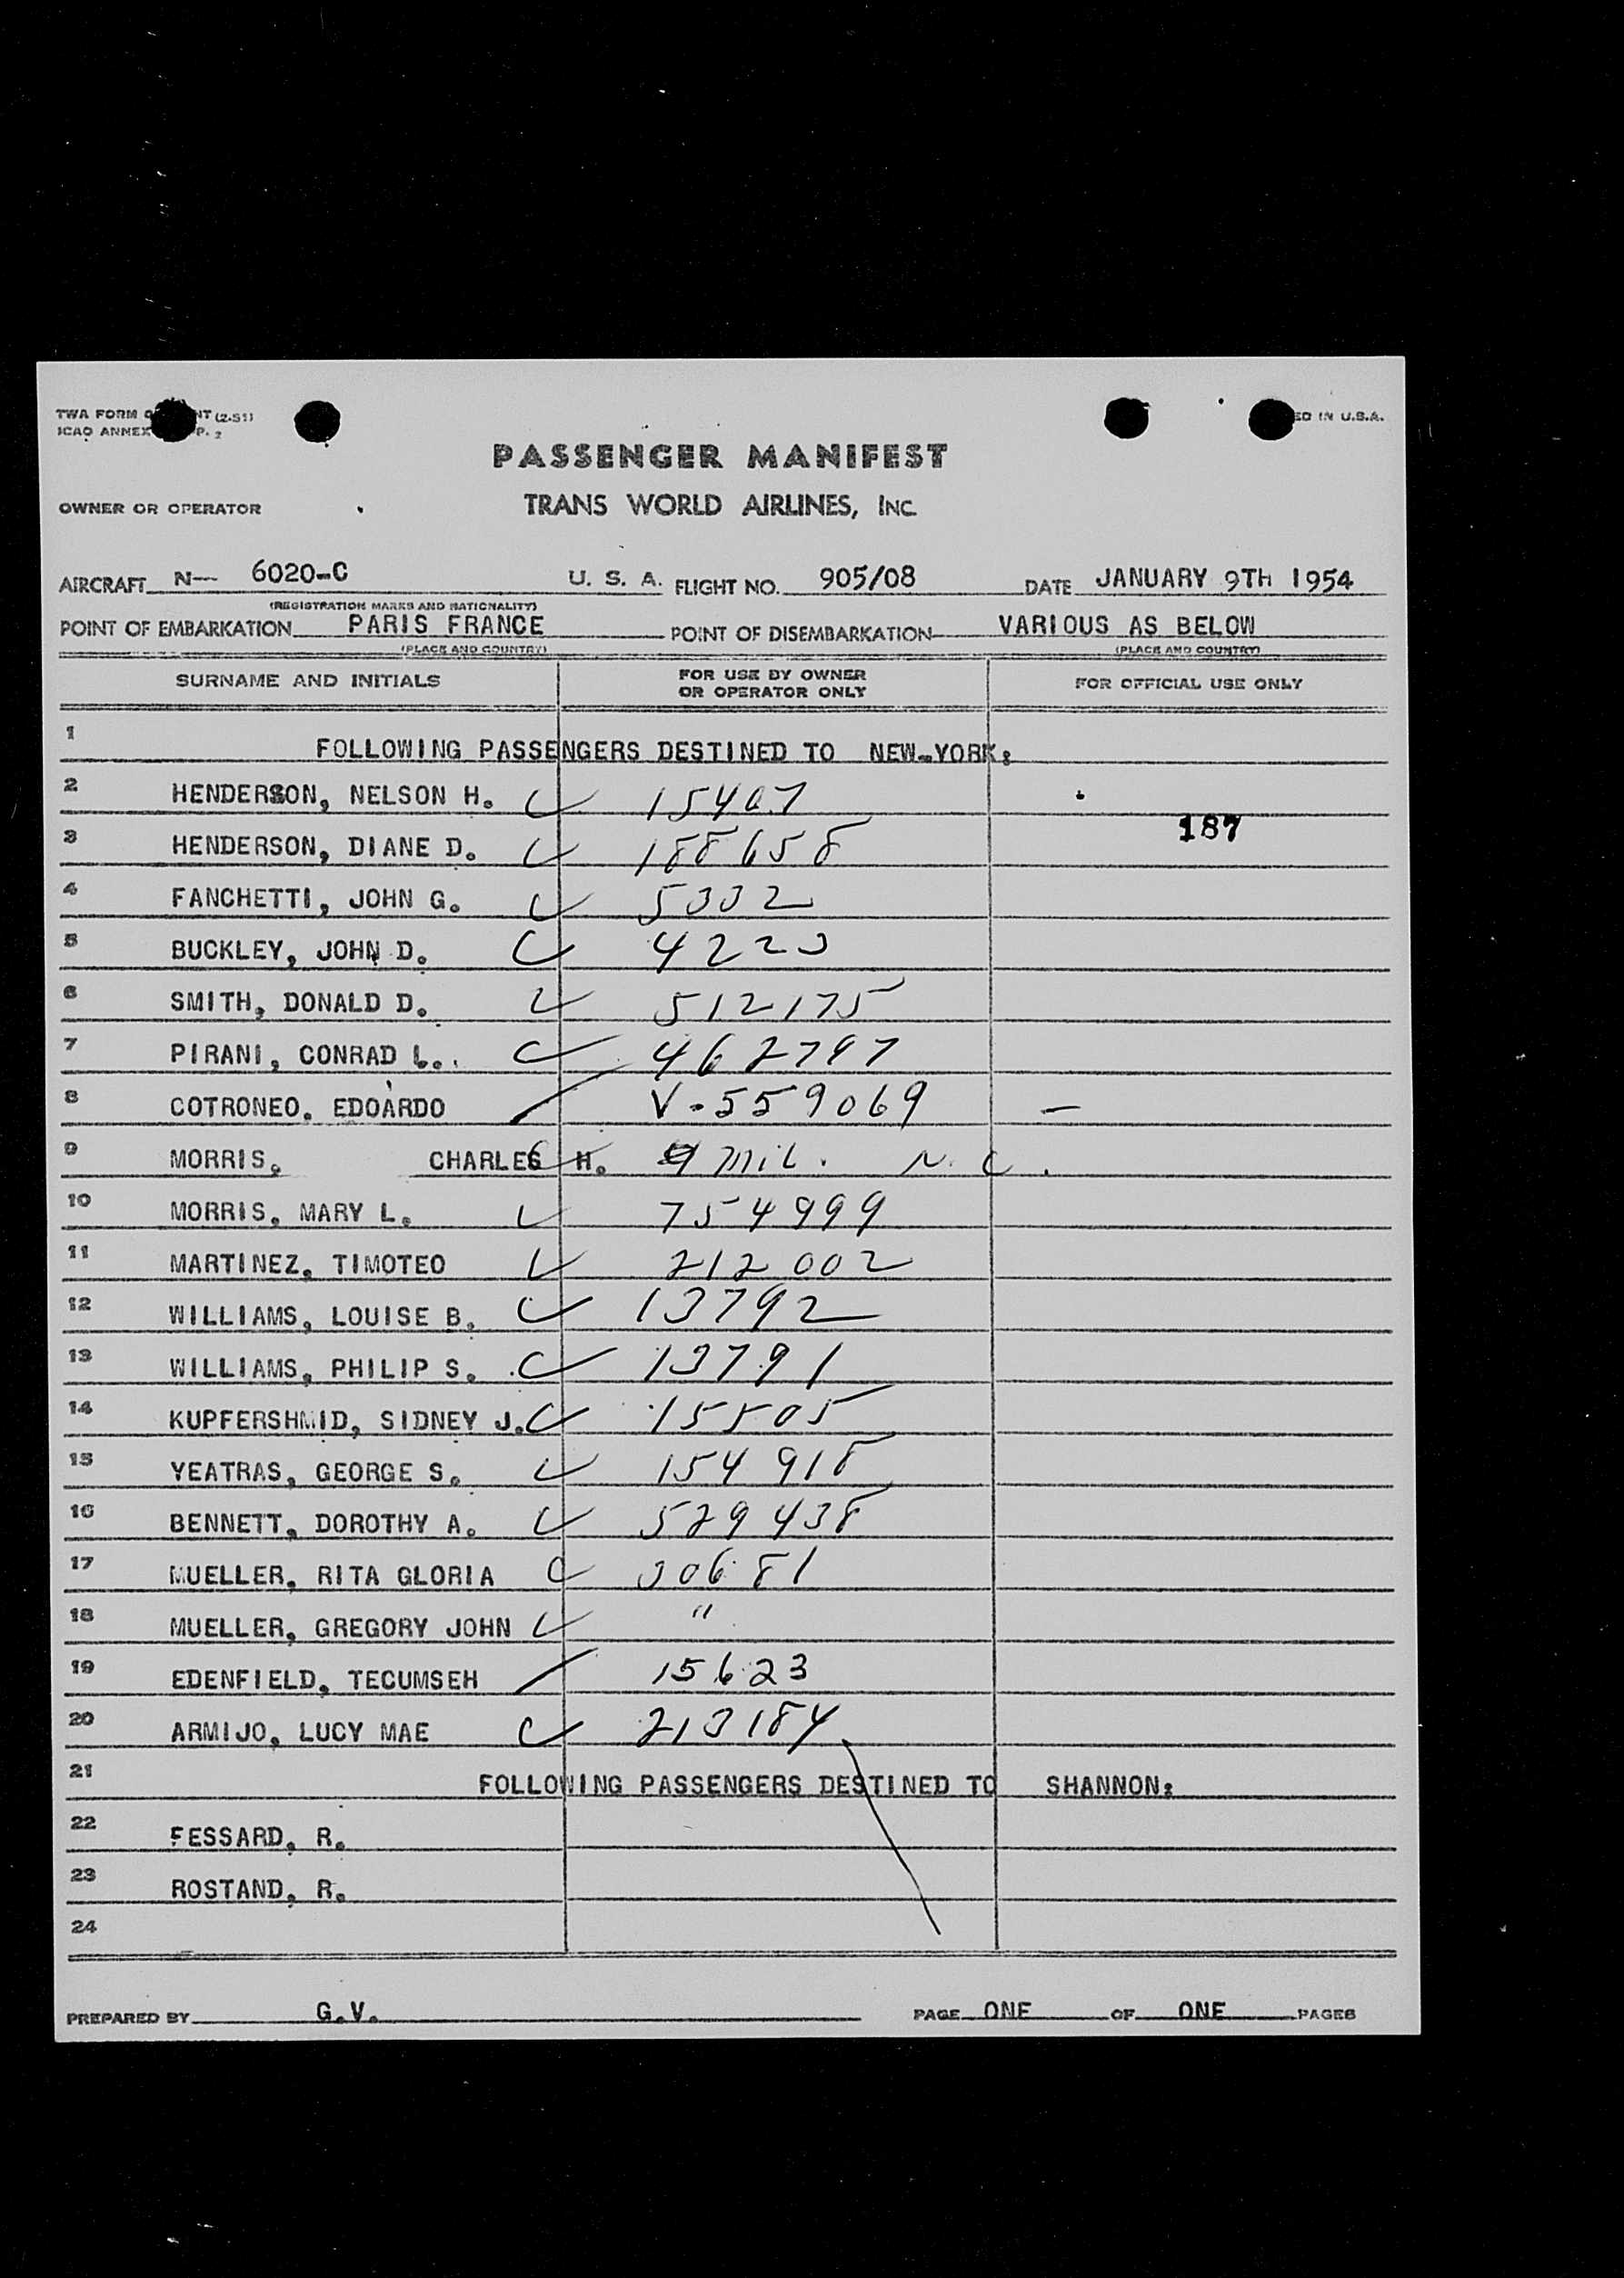 TWA FORM NT (2-51)
ICAO ANNEX P. 2
ED IN U.S.A.
PASSENGER MANIFEST
OWNER OR OPERATOR TRANS WORLD AIRLINES, INC.
AIRCRAFT N— 6020-C U. S. A. FLIGHT NO. 905/08 DATE JANUARY 9TH 1954
(REGISTRATION MARKS AND NATIONALITY)
POINT OF EMBARKATION PARIS FRANCE POINT OF DISEMBARKATION VARIOUS AS BELOW
(PLACE AND COUNTRY) (PLACE AND COUNTRY)
SURNAME AND INITIALS FOR USE BY OWNER OR OPERATOR ONLY FOR OFFICIAL USE ONLY
1 FOLLOWING PASSENGERS DESTINED TO NEW-YORK:
2 HENDERSON, NELSON H. 15407
187
3 HENDERSON, DIANE D. 188658
4 FANCHETTI, JOHN G. 5332
5 BUCKLEY, JOHN D. 4223
6 SMITH, DONALD D. 512175
7 PIRANI, CONRAD L. 462797
8 COTRONEO. EDOARDO V-559069 —
9 MORRIS, CHARLES H. mil. N. C.
10 MORRIS, MARY L. 754999
11 MARTINEZ, TIMOTEO 212002
12 WILLIAMS, LOUISE B. 13792
13 WILLIAMS, PHILIP S. 13791
14 KUPFERSHMID, SIDNEY J. 15505
15 YEATRAS, GEORGE S. 154918
16 BENNETT, DOROTHY A. 529438
17 MUELLER, RITA GLORIA 30681
18 MUELLER, GREGORY JOHN "
19 EDENFIELD, TECUMSEH 15623
20 ARMIJO, LUCY MAE 213184
21 FOLLOWING PASSENGERS DESTINED TO SHANNON:
22 FESSARD, R.
23 ROSTAND, R.
24
PREPARED BY G.V. PAGE ONE OF ONE PAGES